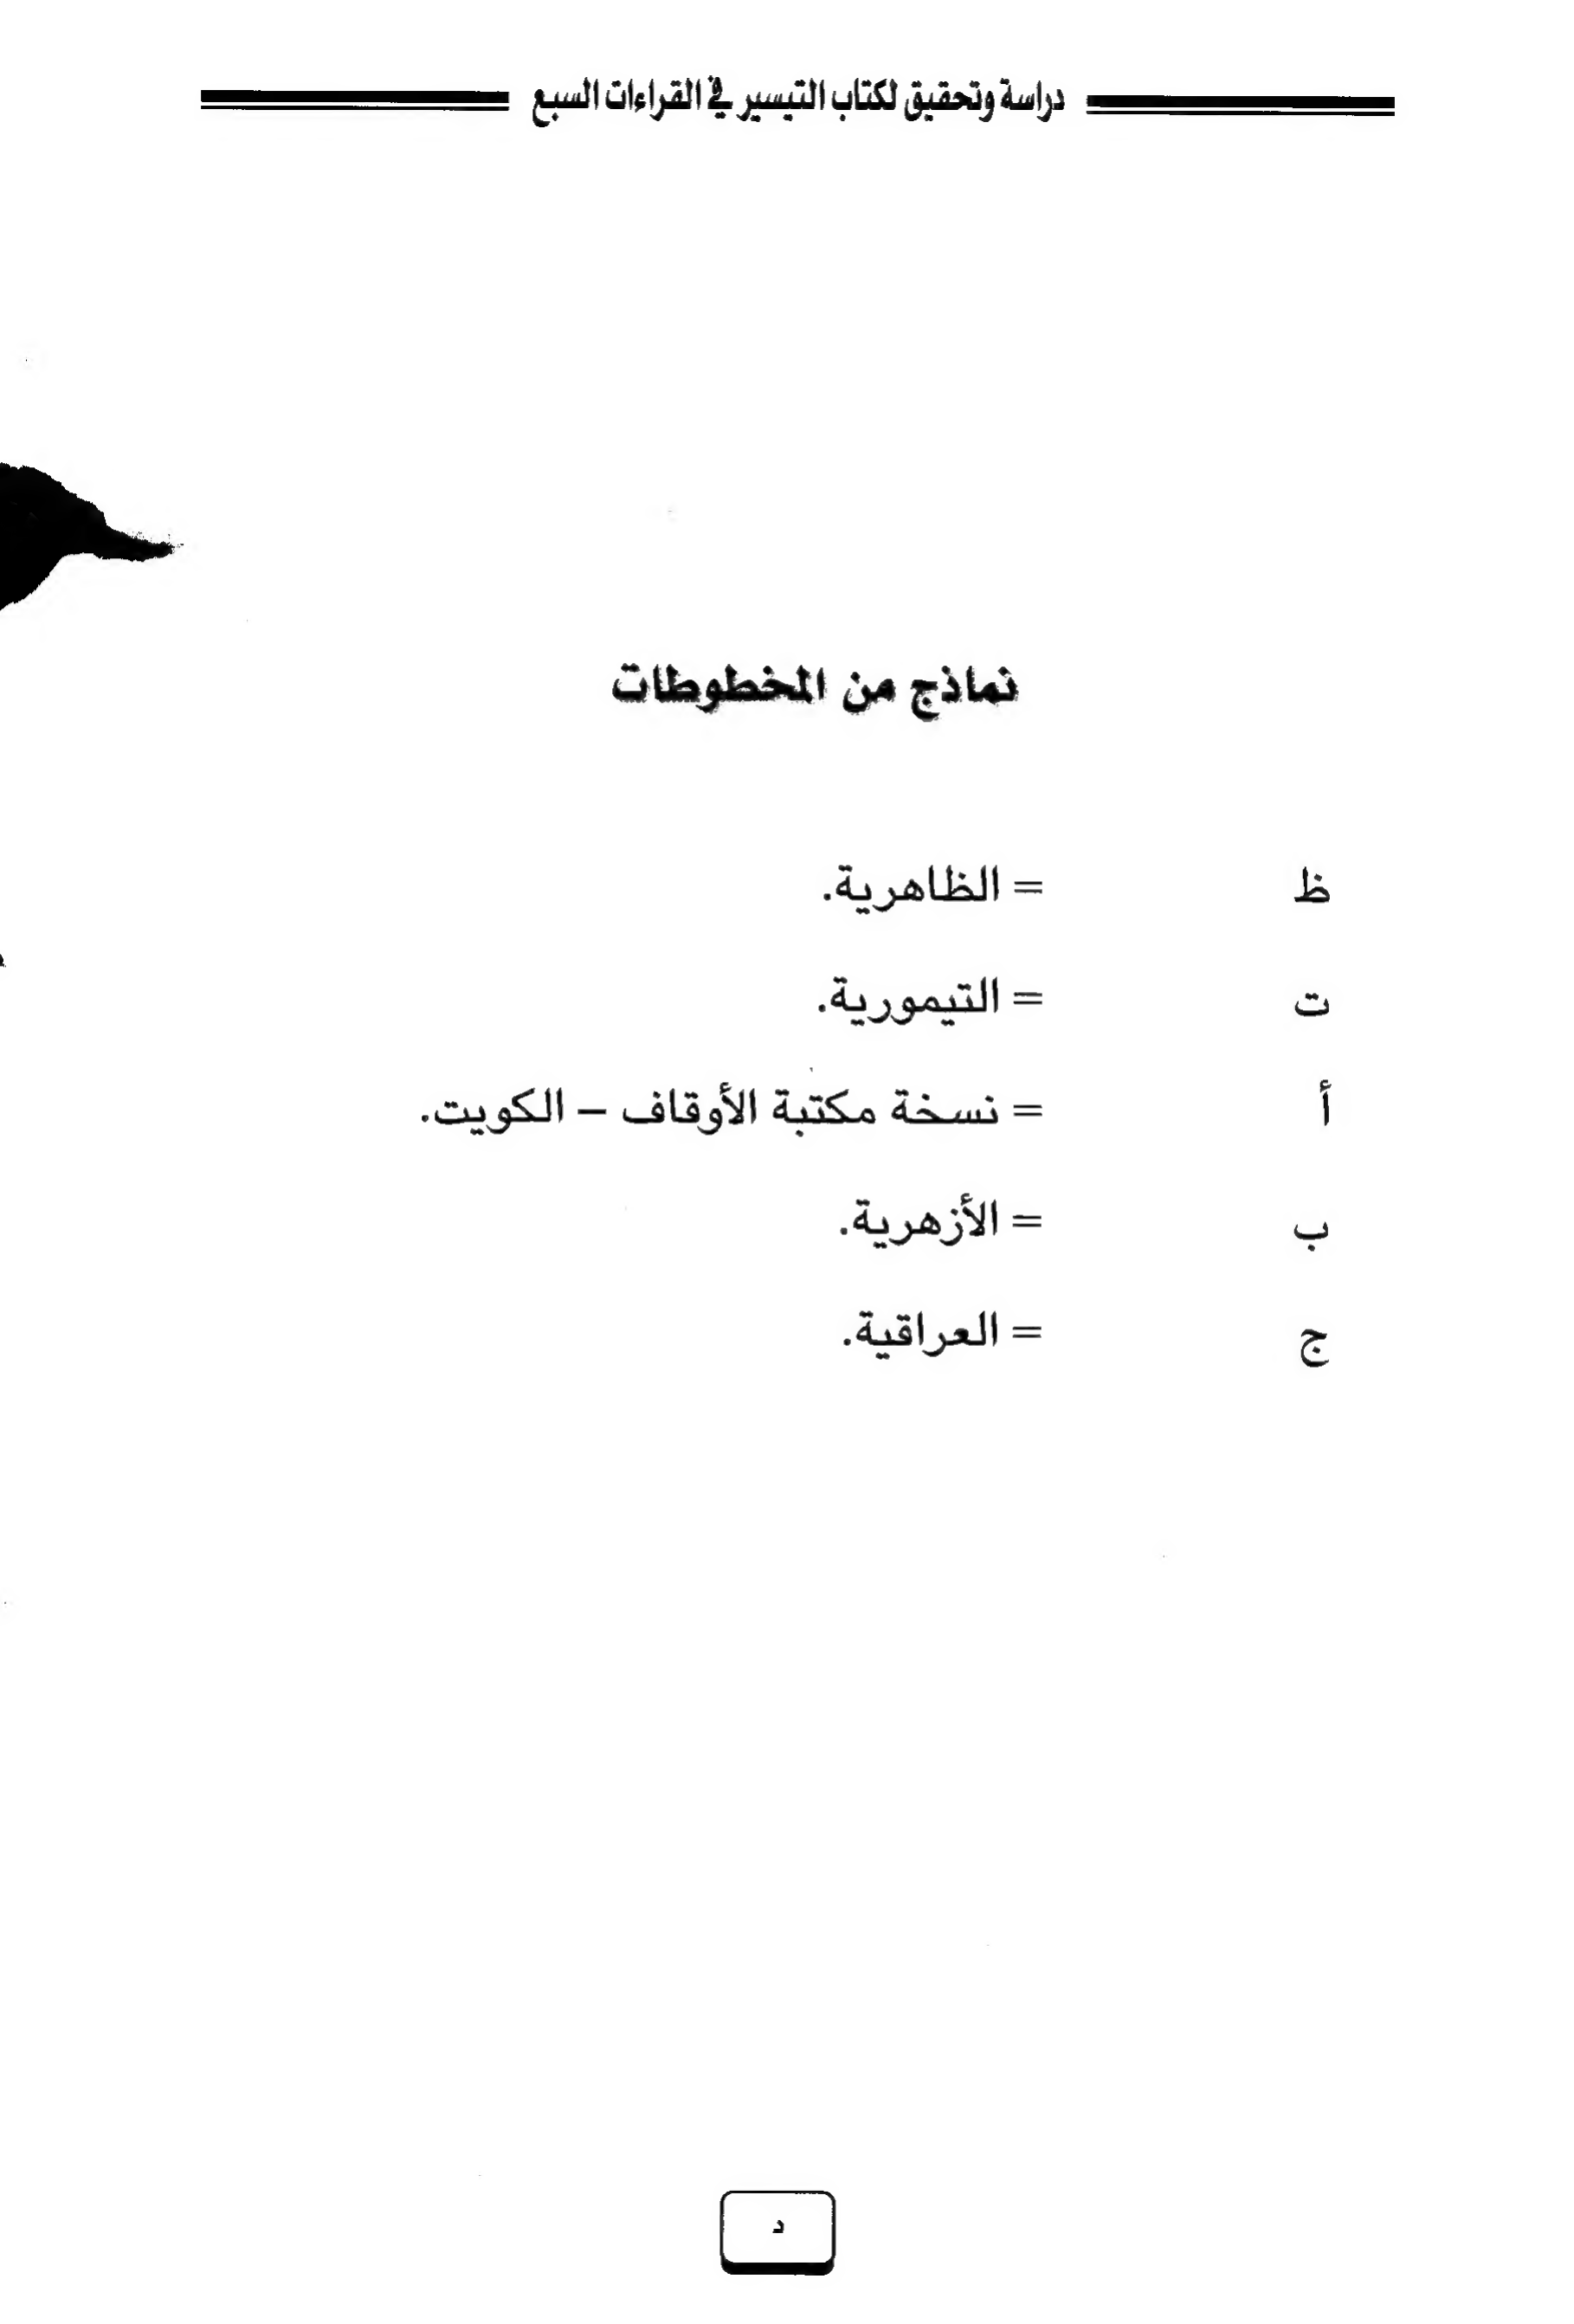 دراسة وتحقيق لكتاب التيسير في القراءات السبع
نماذج من المخطوطات
ظ = الظاهرية.
ت = التيمورية.
أ = نسخة مكتبة الأوقاف – الكويت.
ب = الأزهرية.
ج = العراقية.
د